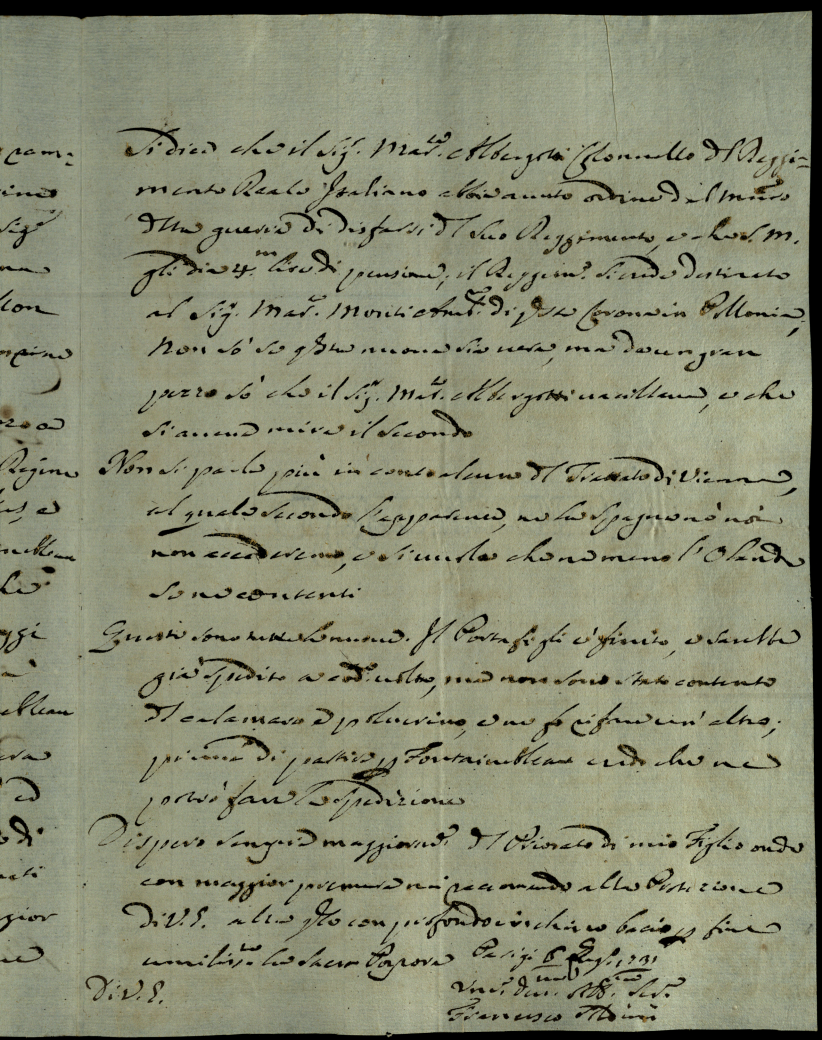 Si dice che il Sig.r Mar.se Albergotti Colonnello del Reggi=
mento Reale Italiano abbia avuto ordine dal
della guerra di disfarsi del suo Reggimento, e che S. M.
gli dia 4.m lire di pensione, il Reggim.to si crede destinato
al Sig.r Mar.se Monti Amb.r di q.sta Corona in Pollonia;
Non sò se q.sta nuova sia vera, ma da un gran
pezzo sò che il Sig.r Mar.se Albergotti vacillava, e che
si aveva mira il secondo
Non si parla più in conto alcuno del Trattato di Vienna,
al quale secondo l'apparenza, ne la Spagna nè noi
non accederemo, e si vuole che nemeno l'Olanda
se ne contenti
Queste sono tutte le nuove. Il Portafogli è finito, e sarebbe
già spedito a cod.a volta, ma non sono stato contento
del calamaro e polverino, e ne fo rifare un' altro;
prima di partire p Fontainebleau credo che ne
potrò fare la spedizione
Dispero sempre maggiorm.te del Priorato di mio Figlio onde
con maggior premura mi raccomando alla Protezione
di V. E. alla q.le con profondo inchino bacio p fine
umiliss.te la Sacra Porpora Parigi 6 1731
Di V. E.
Um.o Dev.mo Obb.mo Ser.e
Francesco